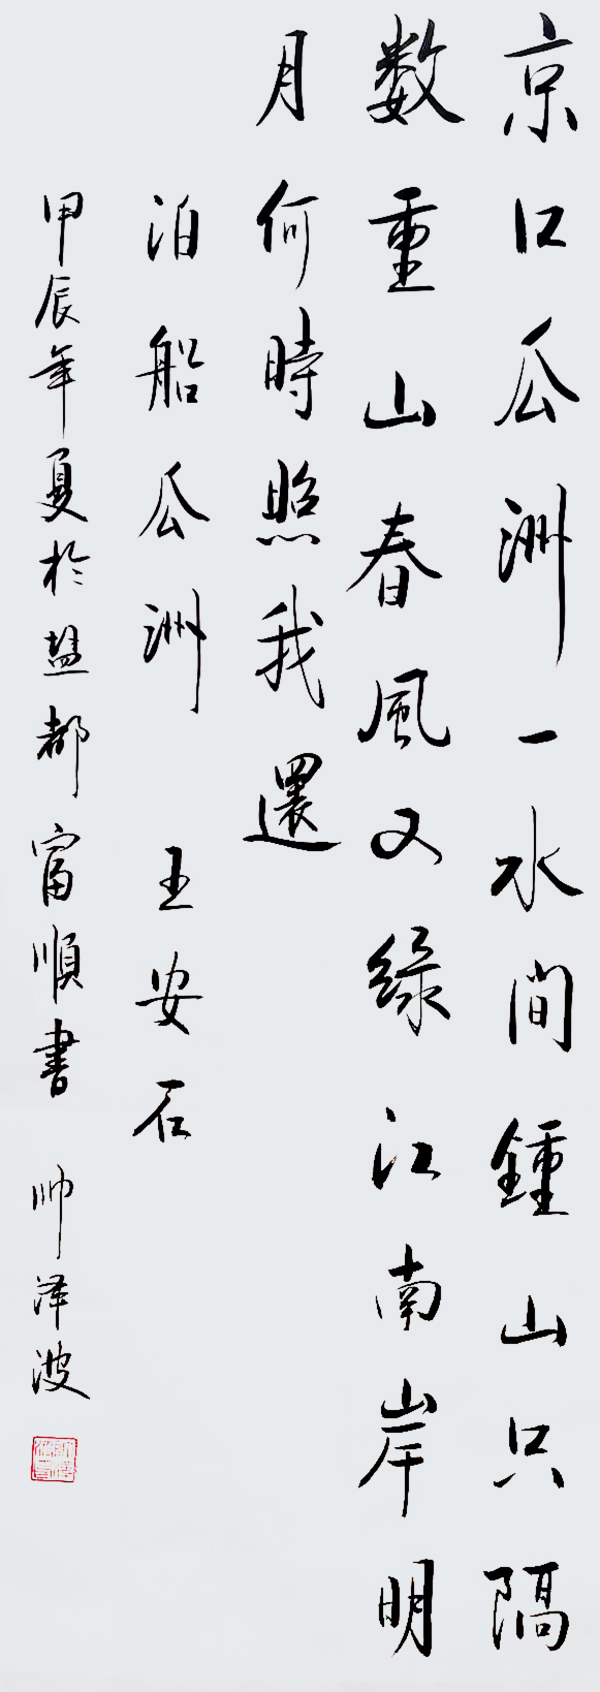 京口瓜洲一水間鍾山只隔
数重山春風又綠江南岸明
月何時照我還
泊船瓜洲 王安石
甲辰年夏於盐都富順書 帅泽波